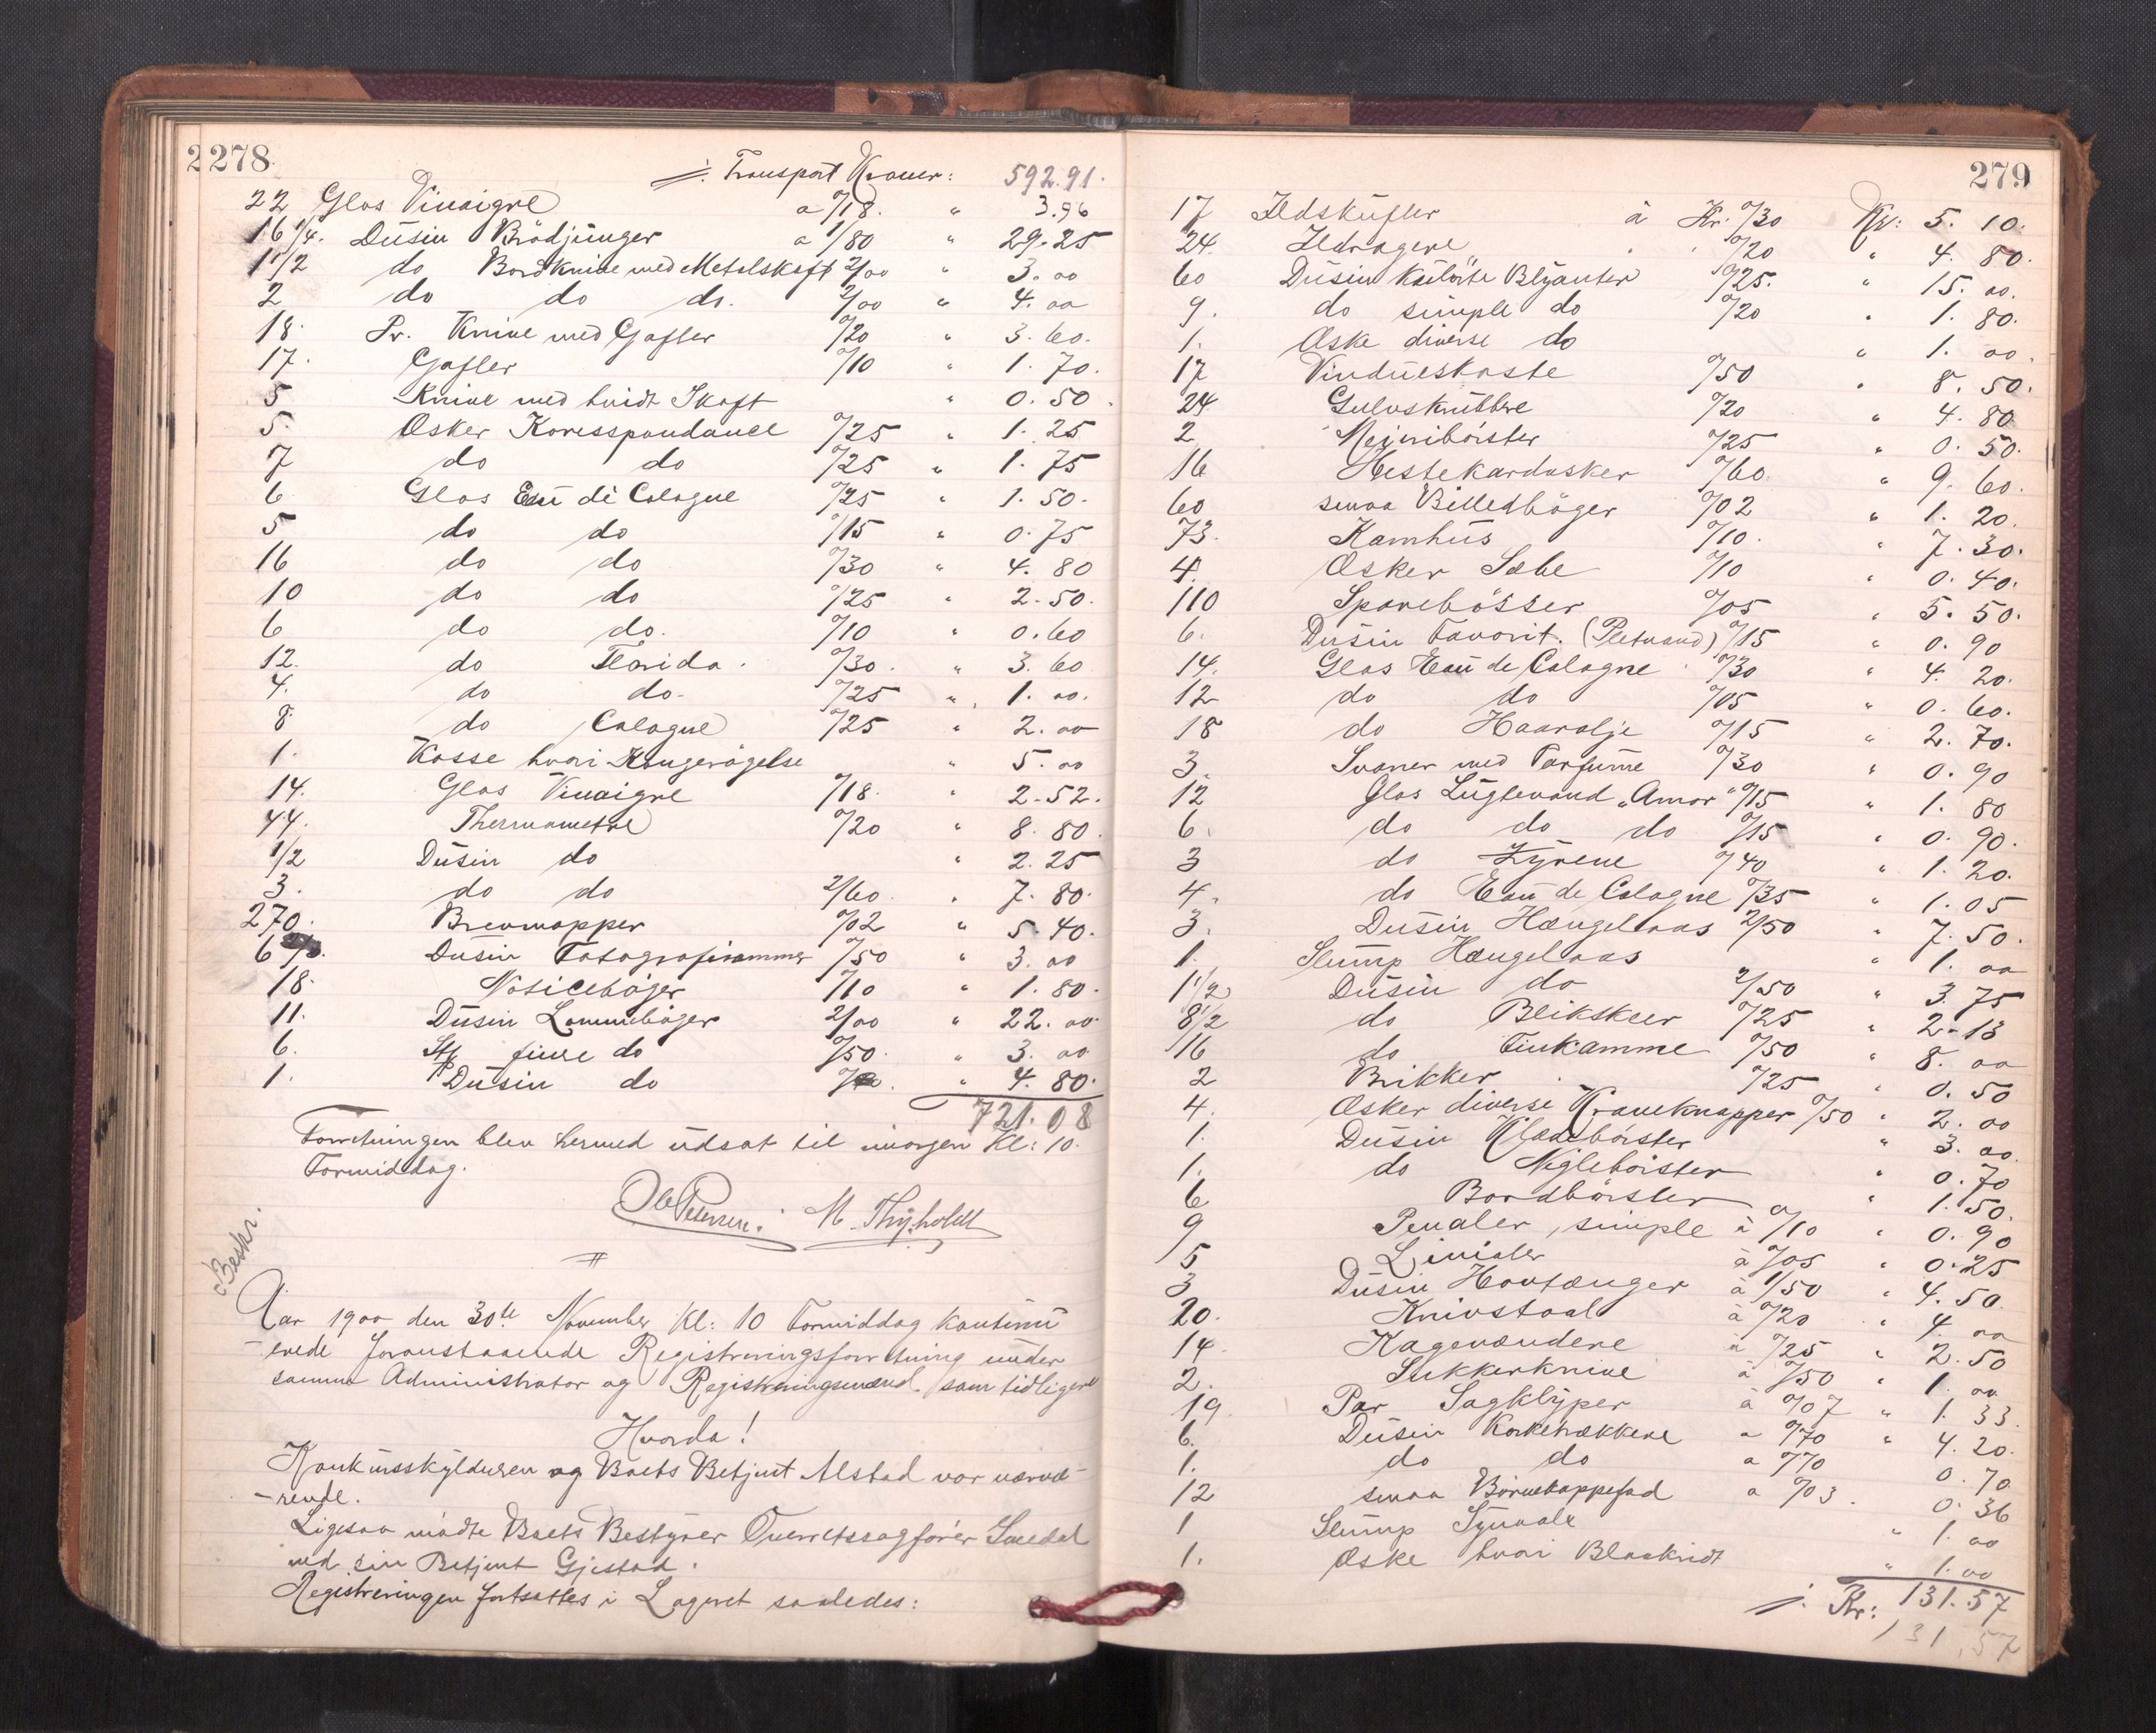 2278
//. Transport Kroner: 592.91.
22 Glas Vinaigre a 0/18. " 3.96
16 1/4. Dusin Brödjunger a 1/80 " 29.25
1 1/2 do Bordknive med Metalskaft 2/00 " 3.00
2 do do do. 2/00 " 4.00
18. Pr. Knive med Gafler 0/20 " 3.60.
17. Gafler 0/10 " 1.70.
5 Knive med hvidt Skaft " 0.50.
5. Æsker Koresspondance 0/25 " 1.25
7 do do 0/25 " 1.75
6 Glas Eau di Cologne 0/25 " 1.50.
5 do do 0/15 " 0.75
16 do do 0/30 " 4.80
10 do do 0/25 " 2.50.
6 do do. 0/10 " 0.60
12. do Florida. 0/30. " 3.60
4. do do. 0/25 " 1.00.
8. do Cologne 0/25 " 2.00
1. Kasse hvori Kongerögelse " 5.00
14. Glas Vinaigre 0/18. " 2.52.
44. Thermometre 0/20 " 8.80.
1/2 Dusin do " 2.25
3. do do 2/60 " 7.80.
270. Brevmapper 0/02 " 5.40.
6 Dusin Fotografirammer 0/50 " 3.00
18. Noticebøger 0/10 " 1.80.
11. Dusin Lommebøger 2/00 " 22.00
6. Stk finere do 0/50. " 3.00
1. Dusin do " 4.80.
721.08
Forretningen blev hermed udsat til imorgen Kl: 10.
Formiddag.
Ole Petersen. M. Thyholdt
//
Beskr.
Aar 1900 den 30te November Kl: 10 Formiddag kontinu
-erede foranstaaende Registreringsforretning under
samme Administrator og Registreringsmænd som tidligere
Hvorda!
Konkursskylderen og Boets Betjent Alstad var nærvæ-
-rende.
Ligesaa mödte Boets Bestyrer Overretssagförer Smedal
ved sin Betjent Gjestad.
Registreringen fortsattes i Lageret saaledes:
279
17 Ildskufler à Kr. 0/30 Kr: 5.10.
24. Ildragere 0/20 " 4.80.
60 Dusin Kulörte Blyanter 0/25. " 15.00.
9. do simple do 0/20 " 1.80.
1. Æske diverse do " 1.00.
17 Vindueskoste 0/50 " 8.50.
24 Gulvskrubbre 0/20 " 4.80
2 Meieribörster 0/25 " 0.50.
16 Hestekardusker 0/60. " 9.60.
60 smaa Billedböger 0/02 " 1.20.
73. Kamhus 0/10. " 7.30.
4. Æsker Sæbe 0/10 " 0.40.
110 Sparebösser 0/05 " 5.50.
6. Dusin Favorit. (Pletvand) 0/15 " 0.90
14. Glas Eau de Cologne 0/30 " 4.20.
12 do do 0/05 " 0.60.
18 do Haarolje 0/15 " 2.70.
3. Svaner med Parfume 0/30 " 0.90
12 Glas Lugtevand "Amor" 0/15 " 1.80
6. do do do 0/15 " 0.90.
3 do Zyrene 0/40 " 1.20.
4. do Eau de Cologne 0/35 " 1.05
3. Dusin Hængelaas 2/50 " 7.50.
1. Slump Hængelaas " 1.00
1 1/2 Dusin do 2/50 " 3.75
8 1/2 do Blikskeer 0/25 " 2.13
16 do Finkamme 0/50 " 8.00
2 Brikker 0/25 " 0.50
4. Æsker diverse Kraveknapper 0/50 " 2.00
1. Dusin Klædebörster " 3.00.
1. do Neglebörster " 0.70
6 Bordbörster " 1.50.
9 Penaler, simple à 0/10 " 0.90
5 Linialer à 0/05 " 0.25
3 Dusin Hovtænger à 1/50 " 4.50.
20. Knivstaal à 0/20 " 4.00
14. Kagevendere à 0/25 " 2.50
2. Sukkerknive à 0/50 " 1.00
19. Par Sagklyper à 0/07 " 1.33.
6. Dusin Korketrækkere a 0/70 " 4.20.
1. do do a 0/70 0.70
12 smaa Börnekoppefad a 0/03. 0.36
1 Slump Synaale " 1.00
1. Æske hvori Blaakridt " 1.00
//. Kr: 131.57
131,57